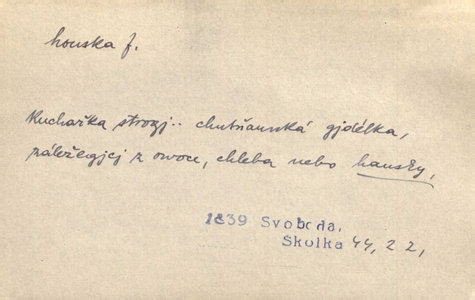 houska f.
Kuchařka strogj.. chutňauská gjdélka,
záležegjcj z owoce, chleba nebo hausky,
1839 Svoboda,
Školka 44, 2 2,